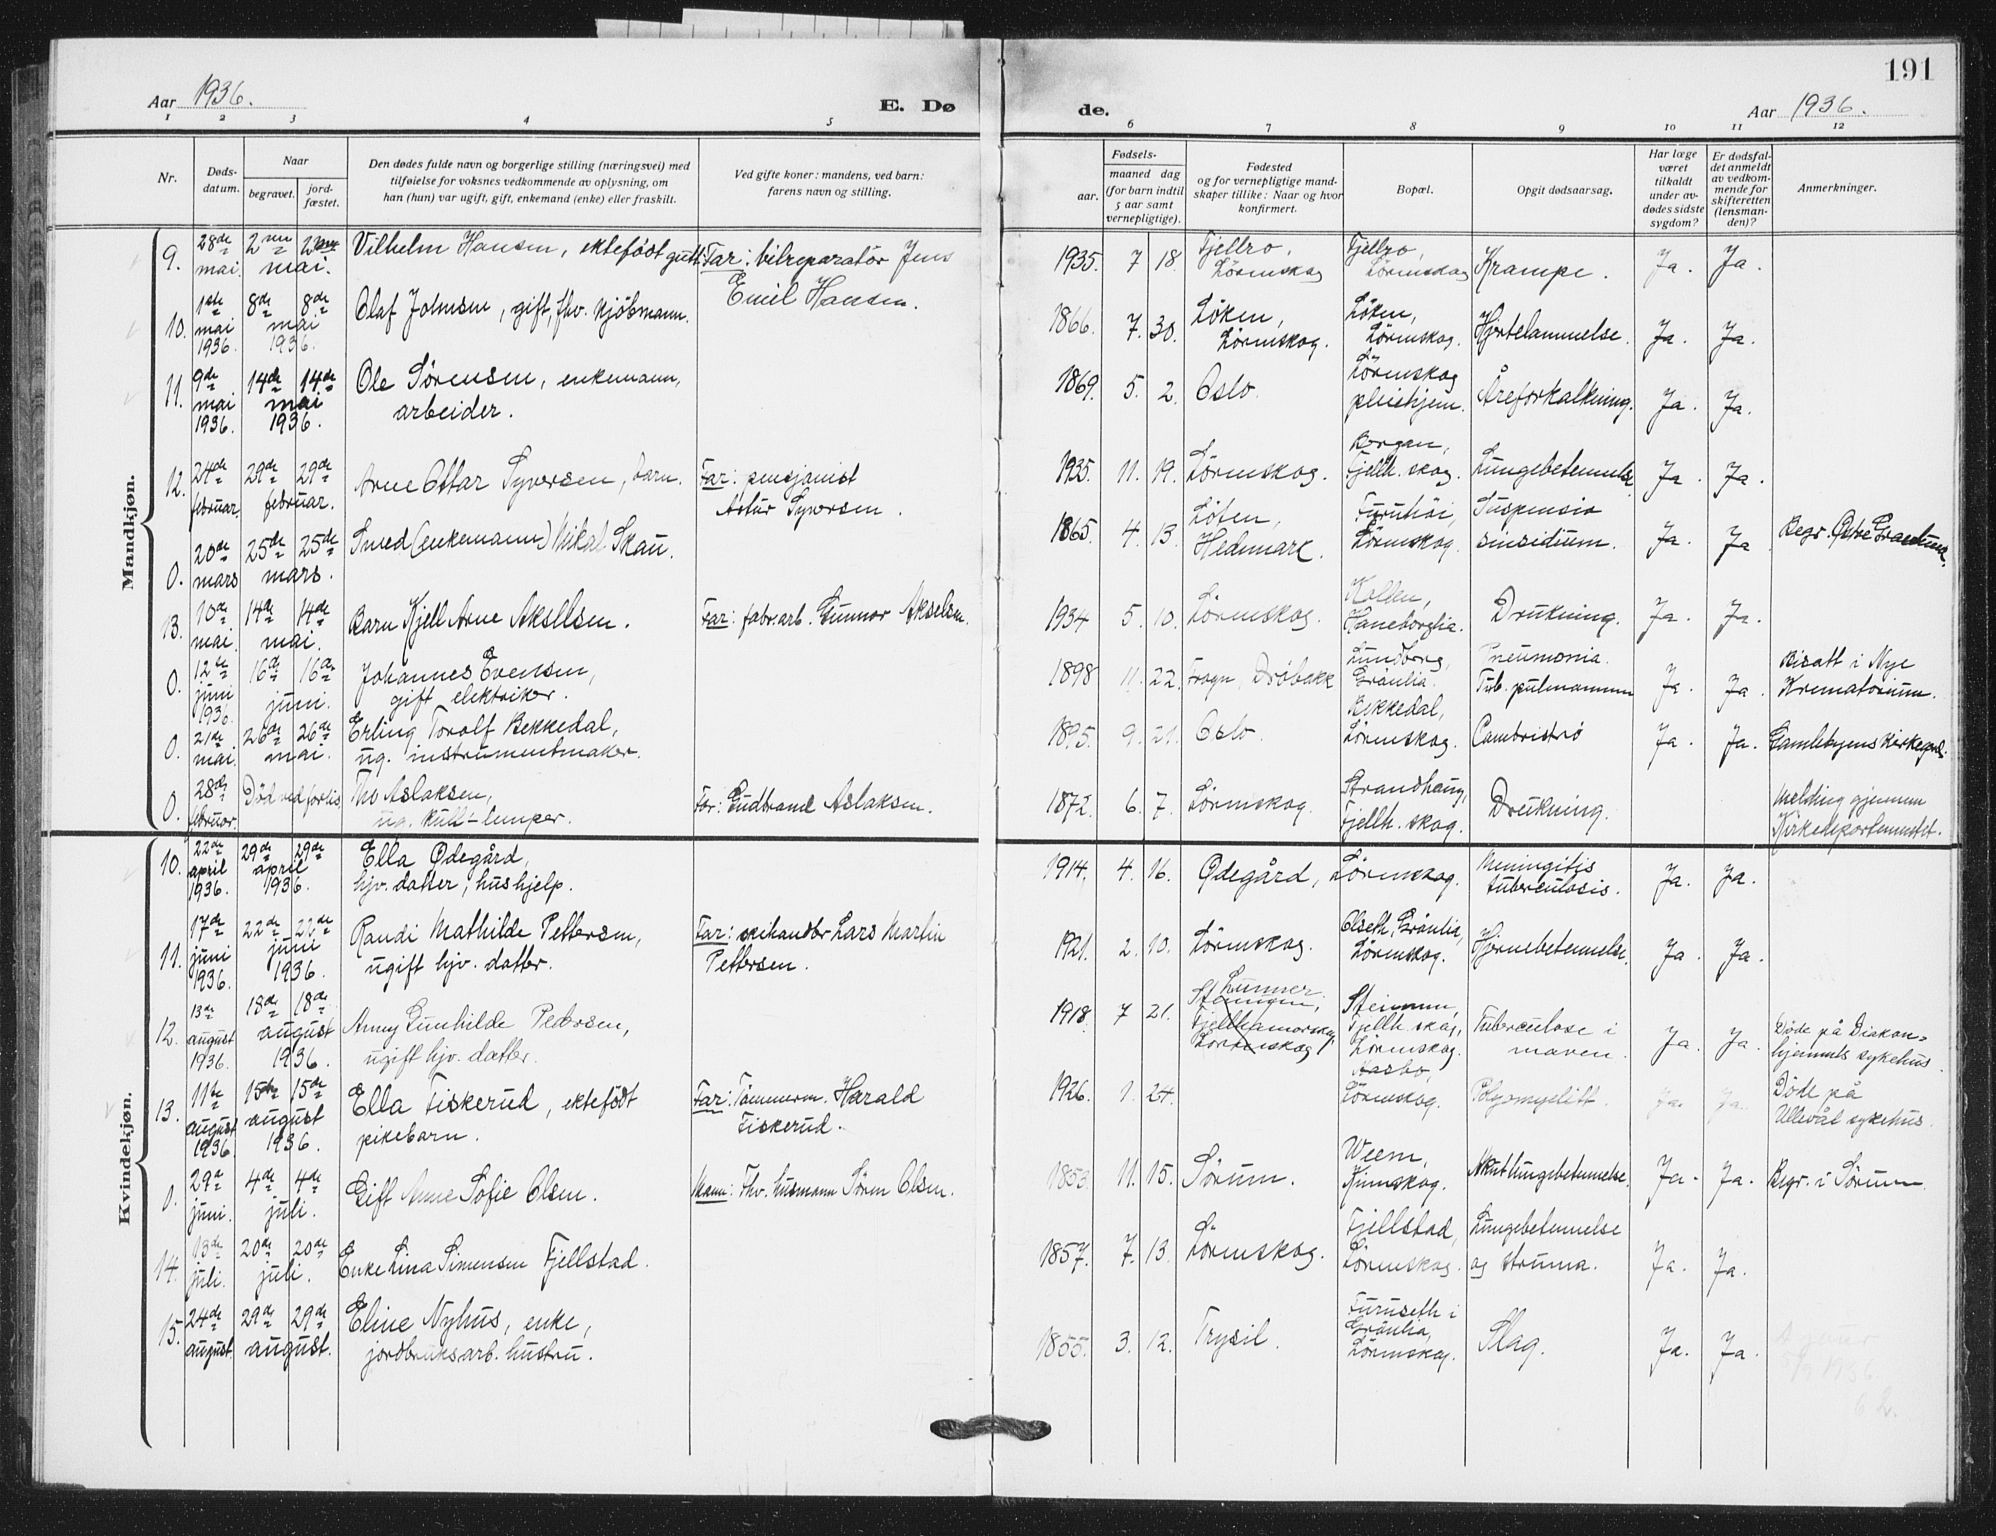 191
Aar 1936.
E. Dø
de.
Aar 1936.
1 2 3 4 5 6 7 8 9 10 11 12
Nr.
Døds-
datum.
Naar
begravet.
jord-
fæstet.
Den dødes fulde navn og borgerlige stilling (næringsvei) med
tilføielse for voksnes vedkommende av oplysning, om
han (hun) var ugift, gift, enkemand (enke) eller fraskilt.
Ved gifte koner: mandens, ved barn:
farens navn og stilling.
Fødsels-
aar.
maaned dag
(for barn indtil
5 aar samt
vernepligtige).
Fødested
og for vernepligtige mand-
skaper tillike: Naar og hvor
konfirmert.
Bopæl.
Opgit dødsaarsag.
Har læge
været
tilkaldt
under av-
dødes sidste
sygdom?
Er dødsfal-
det anmeldt
av vedkom-
mende for
skifteretten
(lensman-
den)?
Anmerkninger.
Mandkjøn.
9. 28de mai. 2 mai. Vilhelm Hansen, ektefödt gutt. Far: bilreparatör Jens
Emil Hansen. 1935. 7 18. Fjellro, Lörenskog Fjellro, Lörenskog Krampe. Ja. Ja.
10. 1ste mai 1936. 8de 8de mai 1936. Olaf Johnsen, gift, fhv. kjöbmann.
1866. 7. 30. Löken, Lörenskog. Löken, Lörenskog. Hjertelammelse. Ja. Ja.
11. 9de mai 1936. 14de 14de mai 1936. Ole Sørensen, enkemann,
arbeider. 1869. 5. 2. Oslo. Lörenskog pleiehjem. Åreforkalkning. Ja. Ja.
12. 24de februar. 29de 29de februar. Arne Ottar Syversen, barn. Far: pensjonist
Syversen. 1935. 11. 19. Lörenskog. Borgan, Fjellh. skog. Lungebetennelse Ja. Ja.
0. 20de mars 25de 25de mars. Smed (enkemann) Mikal Skau.
1865. 4. 13. Löten, Hedemark. Furuhöi, Lörenskog. Suspensio Ja. Ja Begr. Østre
13. 10de mai. 14de 14de mai. Barn Kjell Arne Akselsen. Far: fabr.arb. Gunnar Akselsen.
1934 5. 10. Lörenskog. Haneborglia. Drukning. Ja. Ja.
0. 12te juni 1936. 16de 16de juni. Johannes Evensen,
gift elektriker. 1898 11. 22. Frogn, Dröbakk Grönlia. Pneumonia. Tub. pulmonum Ja. Ja. Bisatt i Nye
Krematorium.
0. 21de mai. 26de 26de mai. Erling Torolf Bekkedal,
ug. instrumentmaker. 1895. 9. 21. Oslo. Bekkedal, Lörenskog. Ja. Ja. Gamlebyens kirkegård.
0. 28de februar. Död ved forlis Aslaksen,
ug. Far: Gudbrand Aslaksen. 1872. 6. 7. Lörenskog. Strandhaug, Fjellh. skog. Drukning. Melding gjennem
Kirkedepartementet.
Kvindekjøn.
10. 22de april 1936. 29de 29de april 1936. Ella Ødegård,
hjv. datter, hushjelp. 1914. 4. 16. Ødegård, Lörenskog. Meningitis tuberculosis. Ja. Ja.
11. 17de juni 1936. 22de 22de juni 1936. Randi Mathilde Pettersen,
ugift hjv. datter. Far: Lars Martin
Pettersen. 1921. 2. 10. Lörenskog. Olseth, Grönlia, Lörenskog. Hjernebetennelse. Ja. Ja.
12. 13de august 1936. 18de 18de august 1936. Anny Gunhilde Pedersen,
ugift hjv. datter. 1918. 7 21. Lunner Fjellhamarskog, Lörenskog Steinmun, Fjellh. skog, Lörenskog. Tuberculose i
maven. Ja. Ja. Döde på Diakon-
hjemmets sykehus.
13. 11te august 1936. 15de 15de august 1936. Ella Fiskerud, ektefödt
pikebarn. Far: Tömmerm. Harald
Fiskerud. 1926. 1. 24. Aasbo, Lörenskog. Polyomyelitt. Ja. Ja. Döde på
Ullevål sykehus.
0. 29de juni. 4de 4de juli. Gift Anne Sofie Olsen. Mann: Fhv. husmann Sören Olsen.
1853. 11. 15. Sørum. Lörenskog. Akut lungebetennelse. Ja. Ja. Begr. i Sørum.
14. 13de juli. 20de 20de juli. Enke Lina Simensen Fjellstad.
1857. 7. 13. Lörenskog. Fjellstad, Lörenskog. Lungebetennelse
og struma. Ja. Ja.
15. 24de august. 29de 29de august. Eline Nyhus, enke,
jordbruksarb. hustru. 1855. 3. 12. Trysil. Furuseth i Grönlia, Lörenskog. Slag. Ja. Ja.